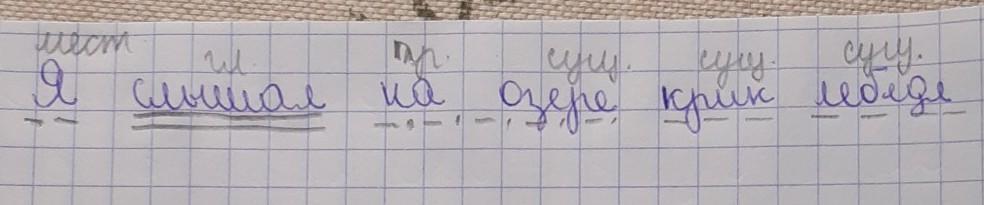 мест гл. пр. сущ. сущ. сущ.
Я слышал на озере крик лебедя